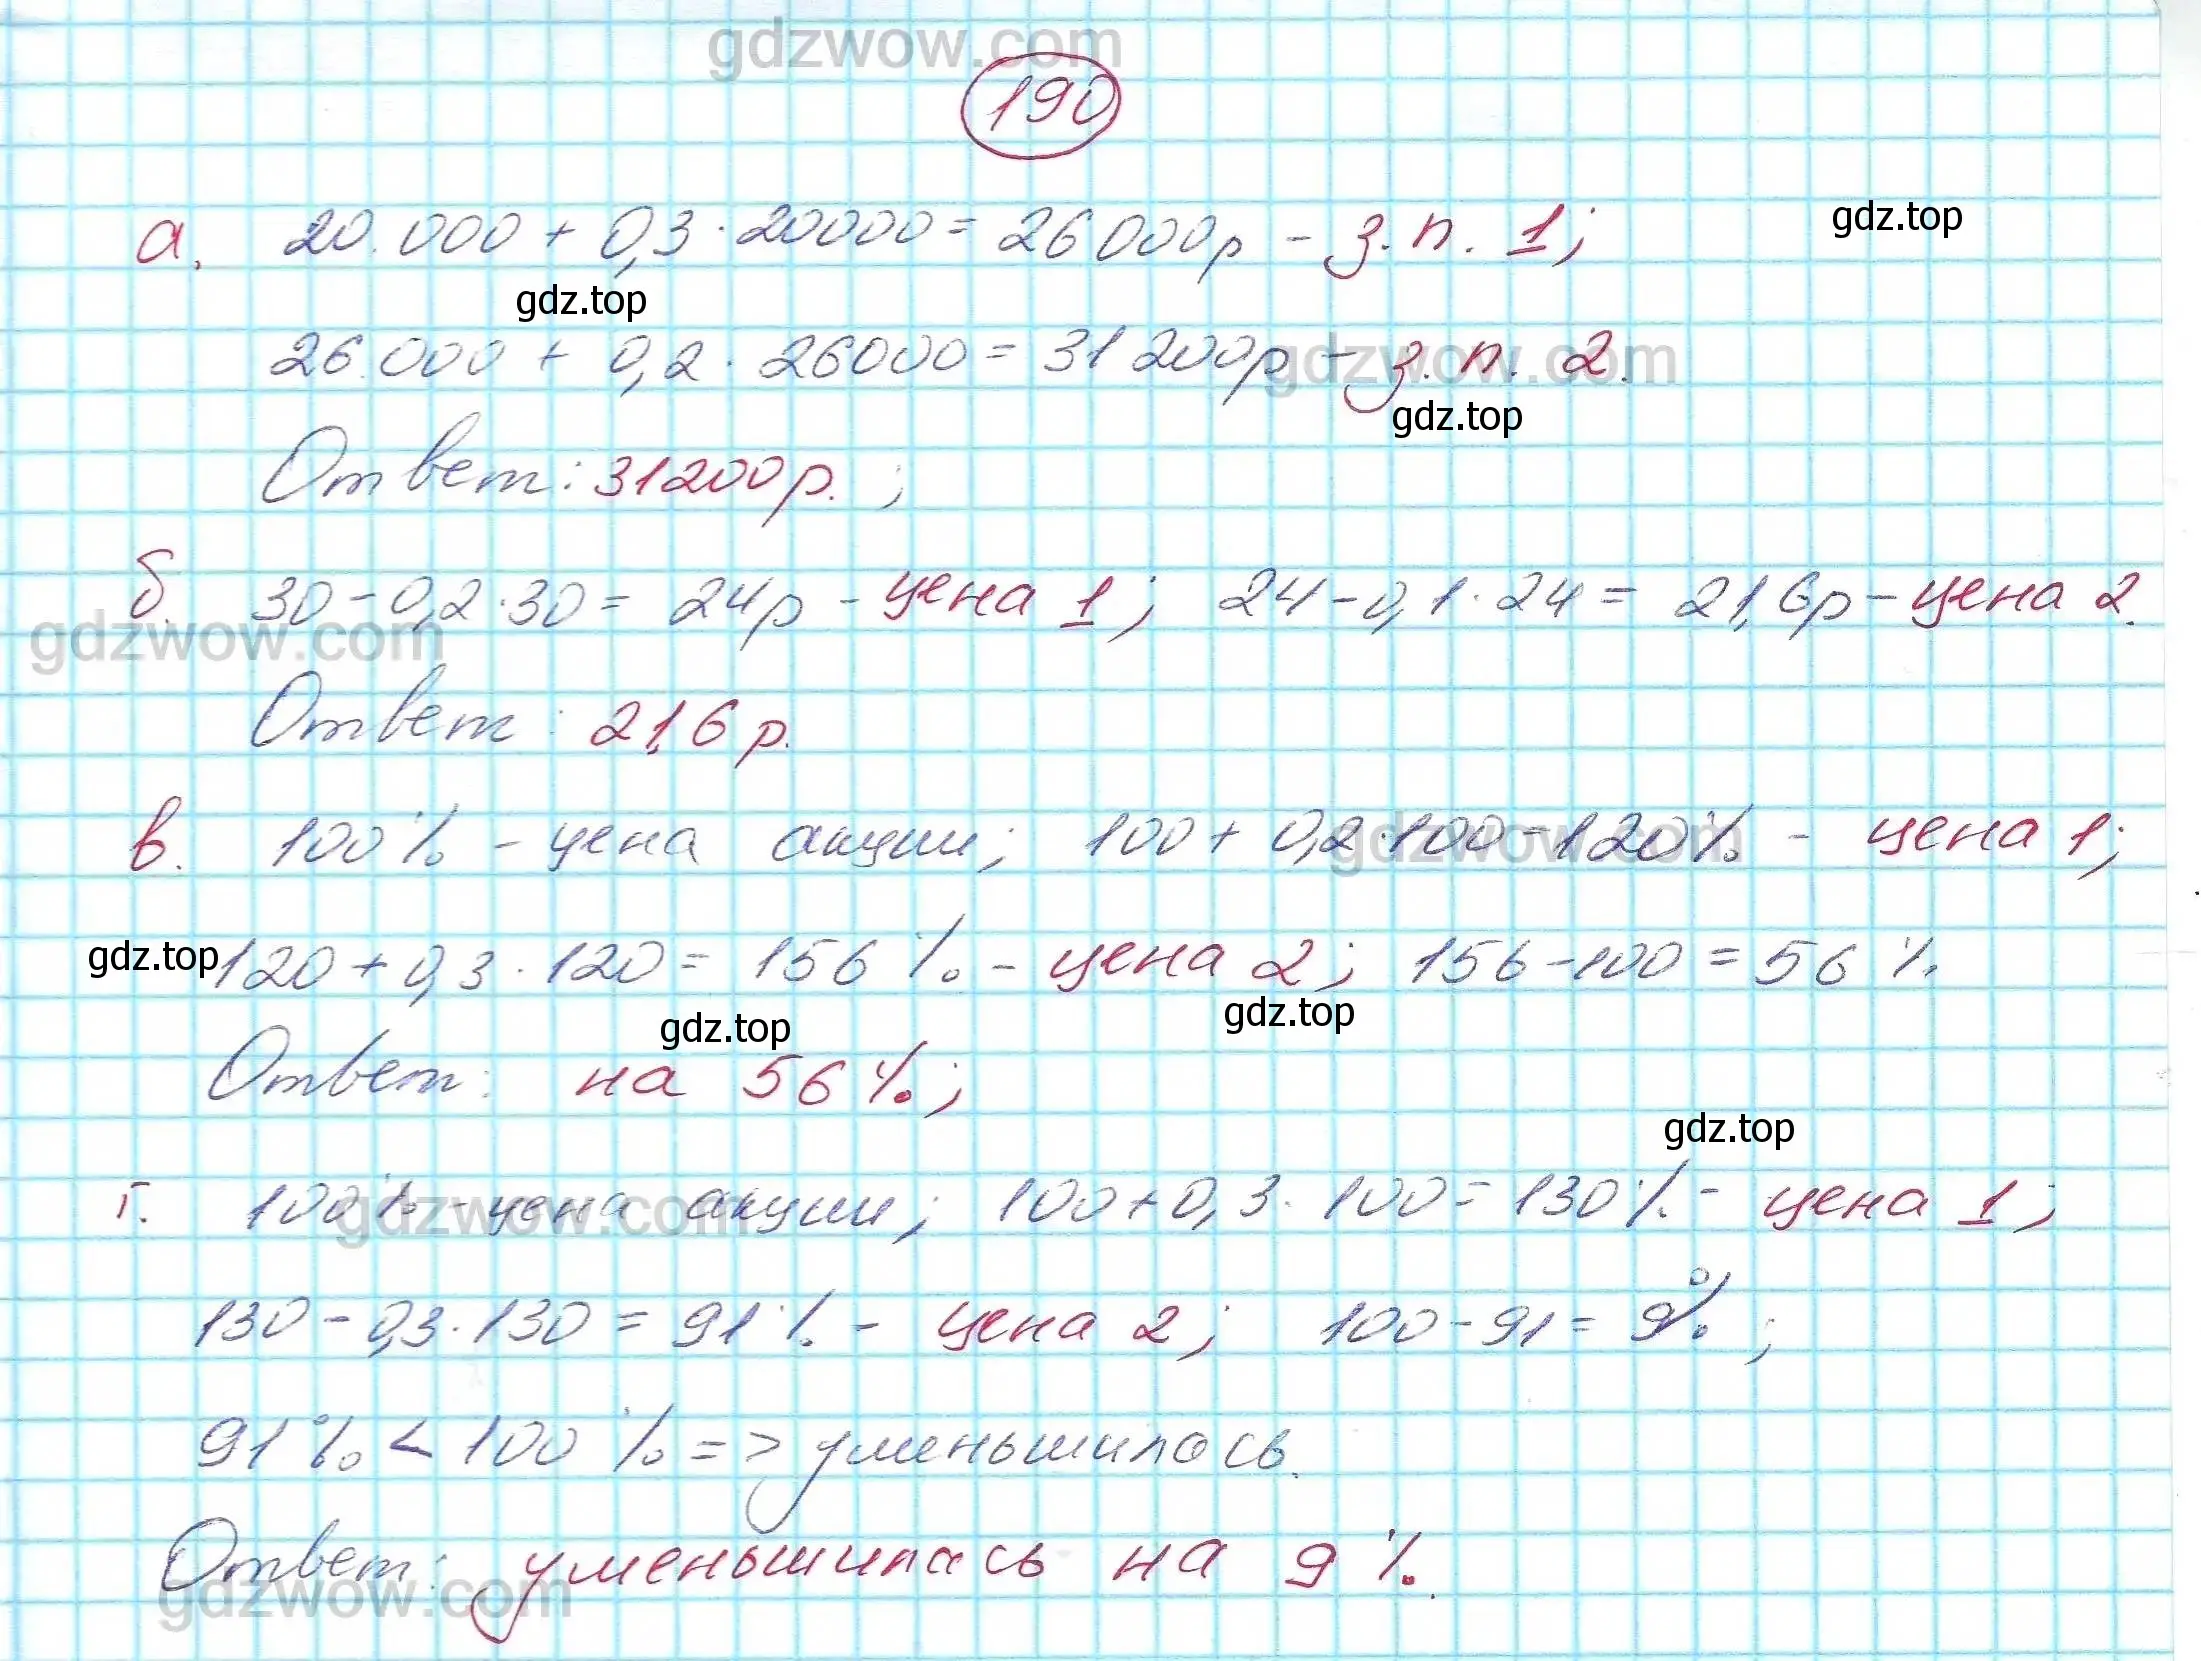 gdzwow.com
190
а. 20.000 + 0,3 · 20000 = 26000р - з.п. 1;
gdz.top
gdz.top
26.000 + 0,2 · 26000 = 31200р - з.п. 2.
gdzwow.com
gdz.top
Ответ: 31200р. ;
б. 30 - 0,2 · 30 = 24р - цена 1; 24 - 0,1 · 24 = 21,6р - цена 2.
gdzwow.com
Ответ: 21,6 р.
в. 100% - цена акции; 100 + 0,2 · 100 = 120% - цена 1;
gdzwow.com
gdz.top
120 + 0,3 · 120 = 156 % - цена 2; 156 - 100 = 56 %.
gdz.top
gdz.top
Ответ: на 56 %;
gdz.top
г. 100% - цена акции; 100 + 0,3 · 100 = 130% - цена 1;
gdzwow.com
130 - 0,3 · 130 = 91 % - цена 2; 100 - 91 = 9% ;
91% < 100 % => уменьшилось.
Ответ: уменьшилась на 9 %.
gdzwow.com